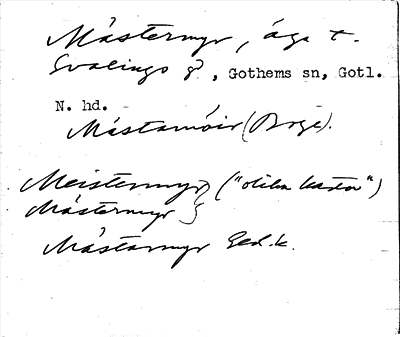 Mästermyr, äga t.
Svalings g, Gothems sn, Gotl.
N. hd.
Mästamöir (Boge).
Meistermyr } ("olika kartor")
Mästermyr
Mästarmyr Ged.k.